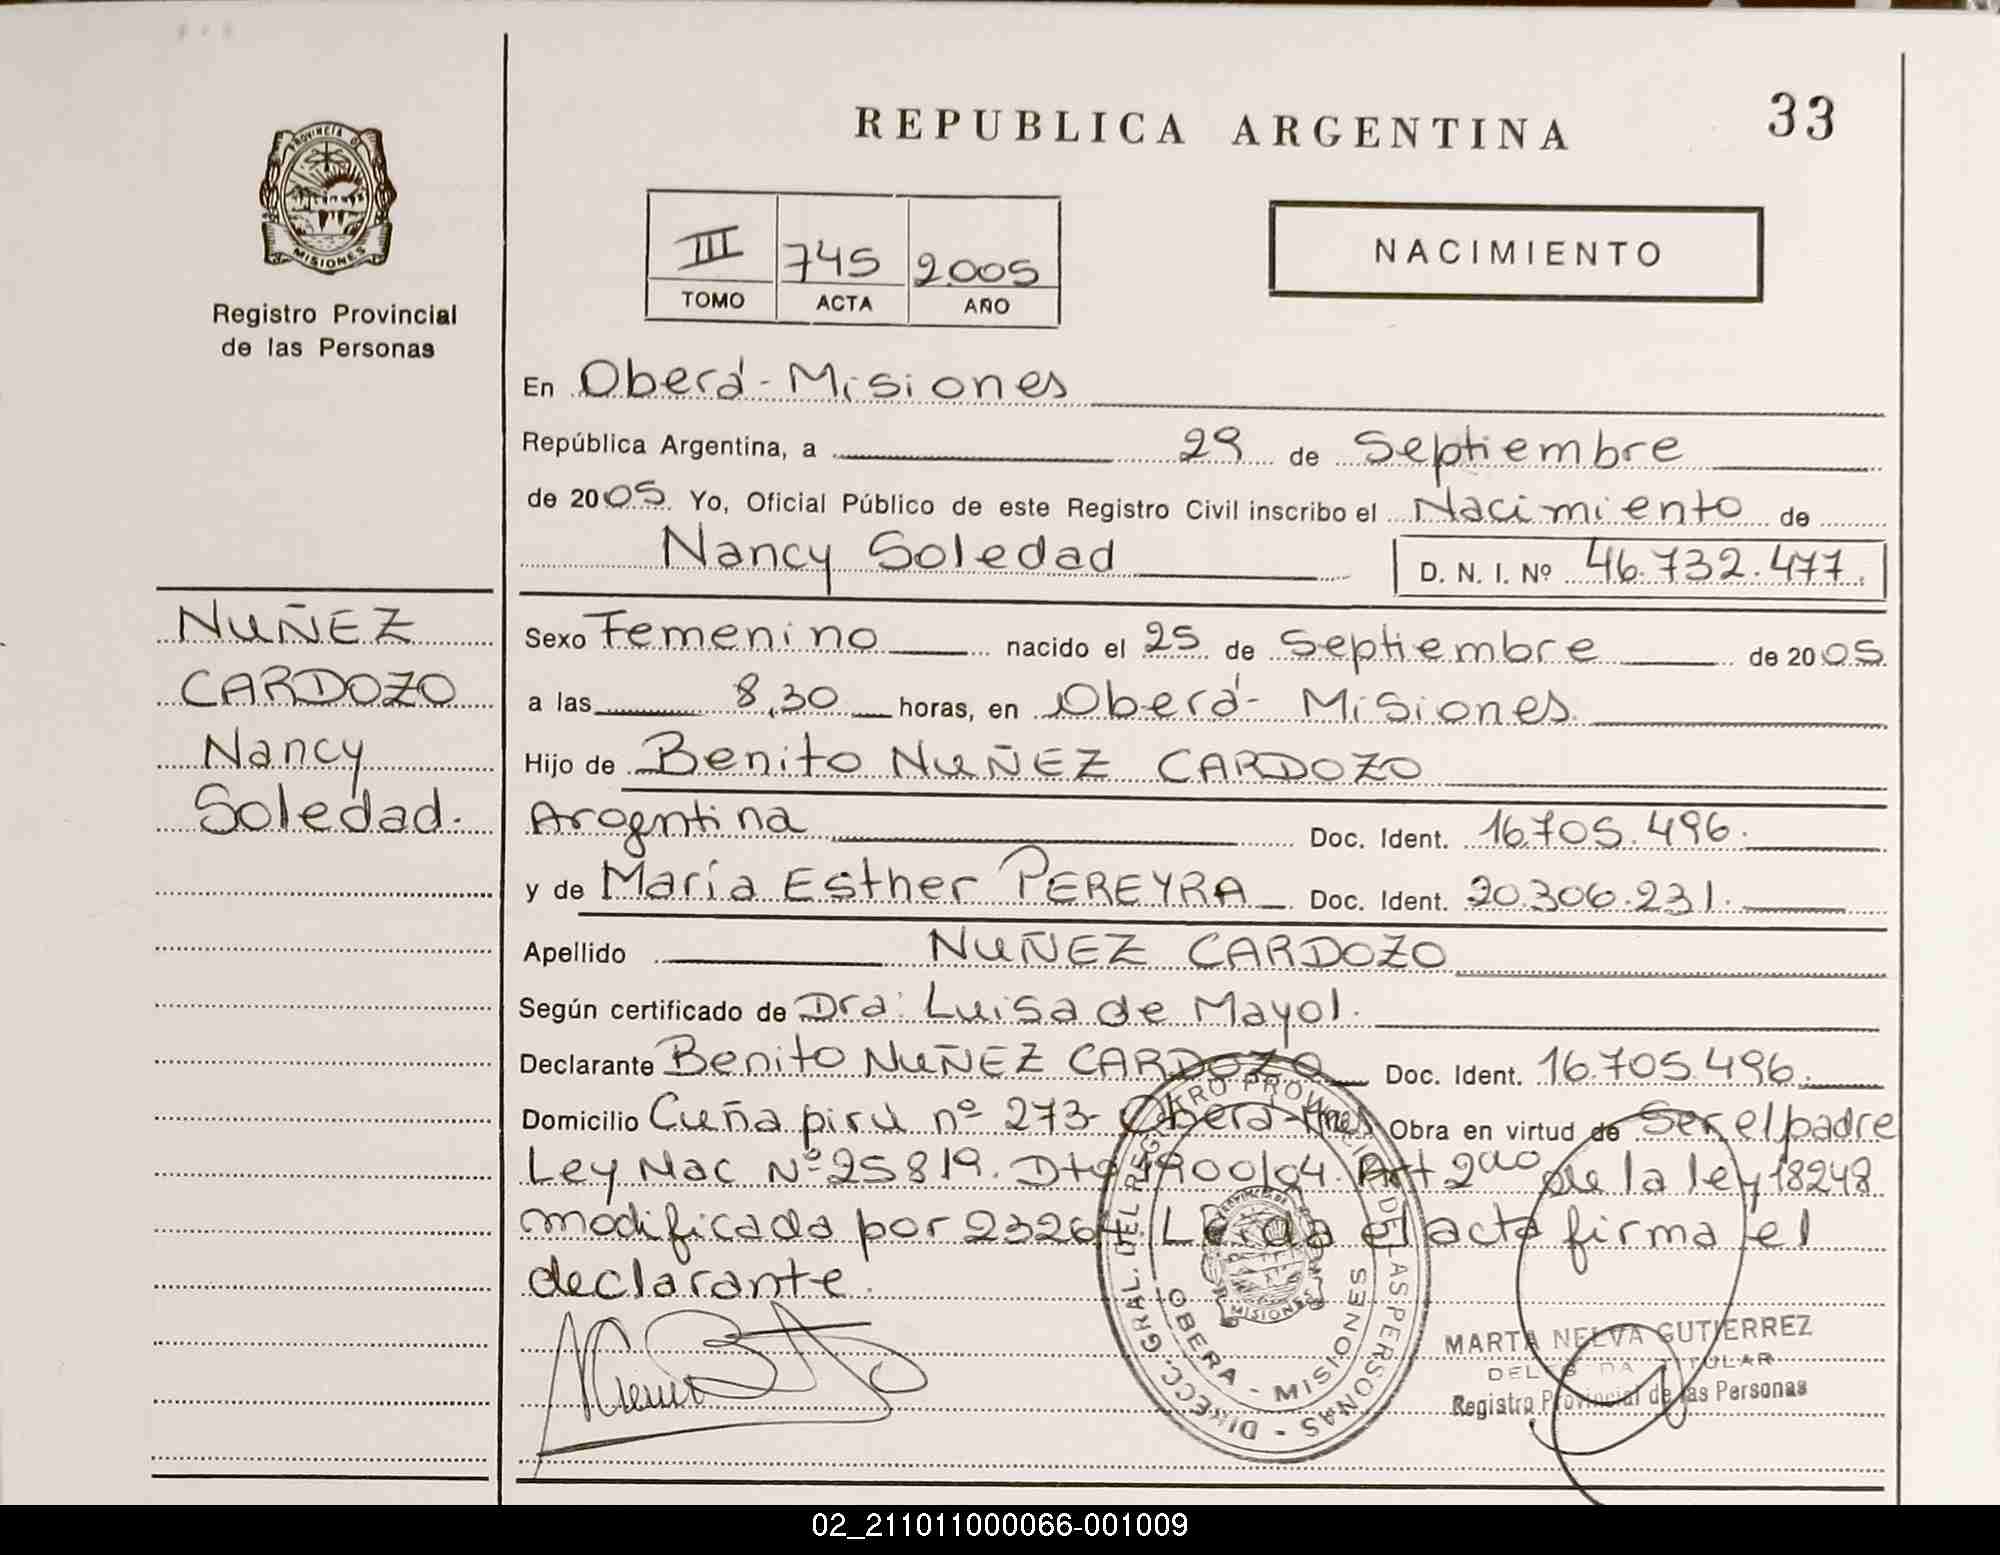 REPUBLICA ARGENTINA
33
PROVINCIA DE
MISIONES
Registro Provincial
de las Personas
III 745 2005
TOMO ACTA AÑO
NACIMIENTO
En Oberá - Misiones
República Argentina, a 29 de Septiembre
de 2005 Yo, Oficial Público de este Registro Civil inscribo el Nacimiento de
Nancy Soledad D. N. I. Nº 46.732.477.
NUÑEZ
CARDOZO
Nancy
Soledad.
Sexo Femenino nacido el 25 de Septiembre de 2005
a las 8,30 horas, en Oberá - Misiones
Hijo de Benito NUÑEZ CARDOZO
Argentina Doc. Ident. 16.705.496.
y de María Esther PEREYRA Doc. Ident. 20.306.231.
Apellido NUÑEZ CARDOZO
Según certificado de Dra: Luisa de Mayol.
Declarante Benito NUÑEZ CARDOZO Doc. Ident. 16.705.496.
Domicilio Cuña piru nº 273 - Oberá - Mnes Obra en virtud de Ser el padre
Ley Nac Nº 25819. Dto 1900/04. Art 2do de la ley 18248
modificada por 23264. Leída el acta firma el
declarante.
DIRECC. GRAL. DEL REGISTRO PROVINCIAL DE LAS PERSONAS
OBERA - MISIONES
MISIONES
MARTA NELVA GUTIERREZ
TITULAR
Registro Provincial de las Personas
02_211011000066-001009